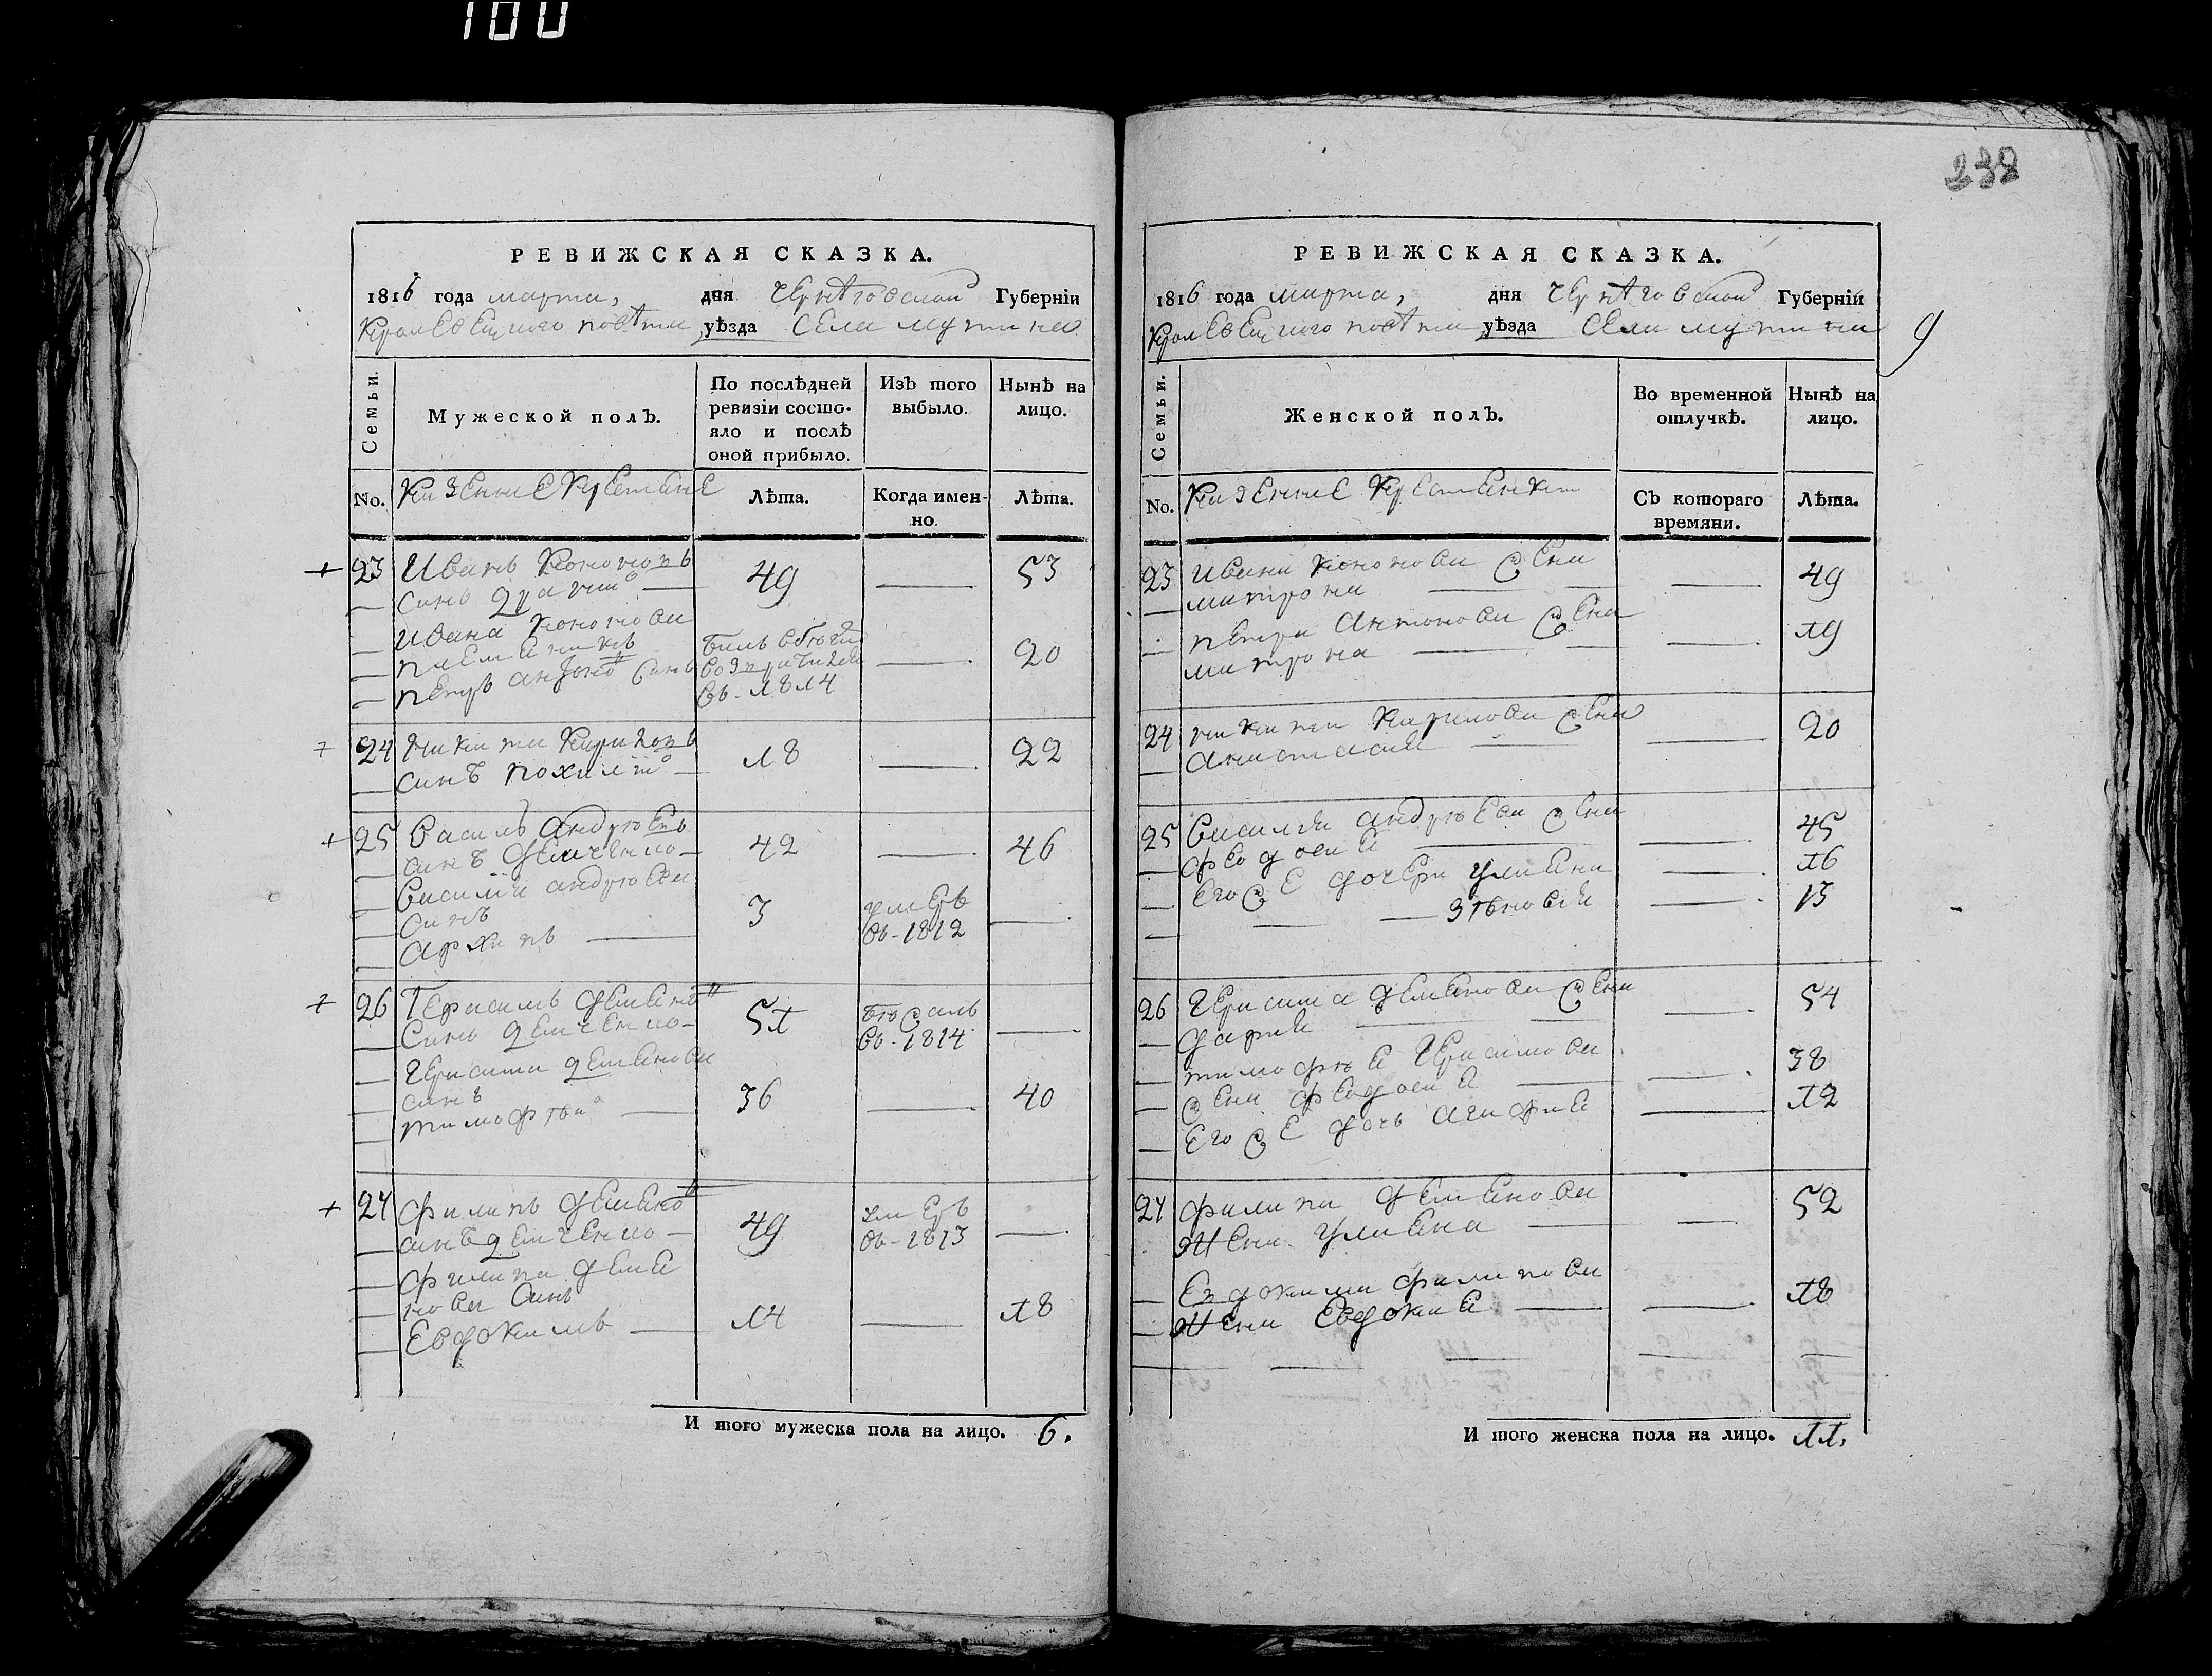 100
238
РЕВИЖСКАЯ СКАЗКА.
1816 года марта, дня Черниговской Губерніи
Кролевецкого повѣта уѣзда Села Мутина
Семьи.
Мужеской полЪ.
По послѣдней
ревизіи состо-
яло и послѣ
оной прибыло.
ИзЪ того
выбыло.
Нынѣ на
лицо.
No.
Казенние Крестяне
Лѣта.
Когда имен-
но.
Лѣта.
23 Иванъ Кононовъ 49 53
синъ
Ивана Кононова
племянникъ
Петръ Антоновъ Синъ 20
въ 1814
24 Никита Кириловъ 18 22
синъ Похил
25 Василь Андрюевъ 42 46
синъ Демченко
Василия Андрюева
Синъ 3 умеръ
Архипъ въ-1812
26 Герасимъ Демяновъ 51
Синъ Демченко въ-1814
Герасима Демянова
синъ 36 40
Тимофѣй
27 Филипъ Демяновъ 49 умеръ
синъ Демченко въ-1813
Филипа Демя
нова Синъ
Евдокимъ 14 18
И того мужеска пола на лицо. 6.
РЕВИЖСКАЯ СКАЗКА.
1816 года марта, дня Черниговской Губерніи
Кролевецкого повѣта уѣзда Села Мутина
9
Семьи.
Женской полЪ.
Во временной
отлучкѣ.
Нынѣ на
лицо.
No.
Казенние Крестянки
СЪ котораго
времяни.
Лѣта.
23 Ивана Кононова жена 49
Матрона
Петра Антонова жена 19
Матрона
24 Никити Кирилова жена 20
Анастасия
25 Василия Андрюева жена 45
Феодосия
Его же дочери Улияна 16
Зѣновия 13
26 Герасима Демянова жена 54
Дария
Тимофѣя Герасимова
жена Феодосия 38
Его же дочь Агафия 12
27 Филипа Демянова 52
жена Улияна
Евдокима Филипова
жена Евдокия 18
И того женска пола на лицо. 11.